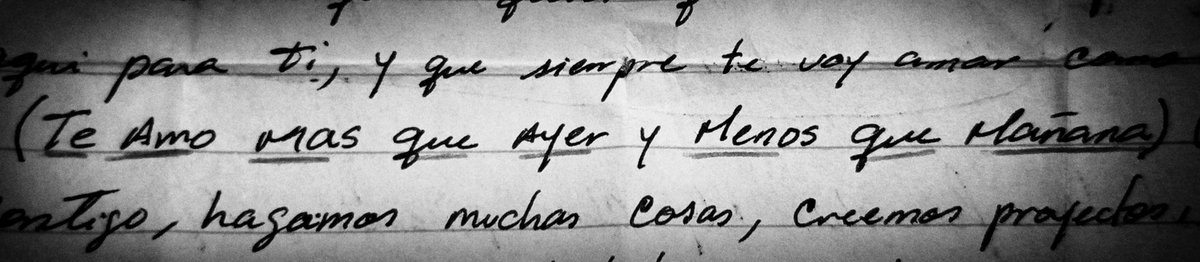 aqui para ti, y que siempre te voy amar como
(Te Amo Mas que Ayer y Menos que Mañana)
contigo, hagamos muchas cosas, creemos proyectos,